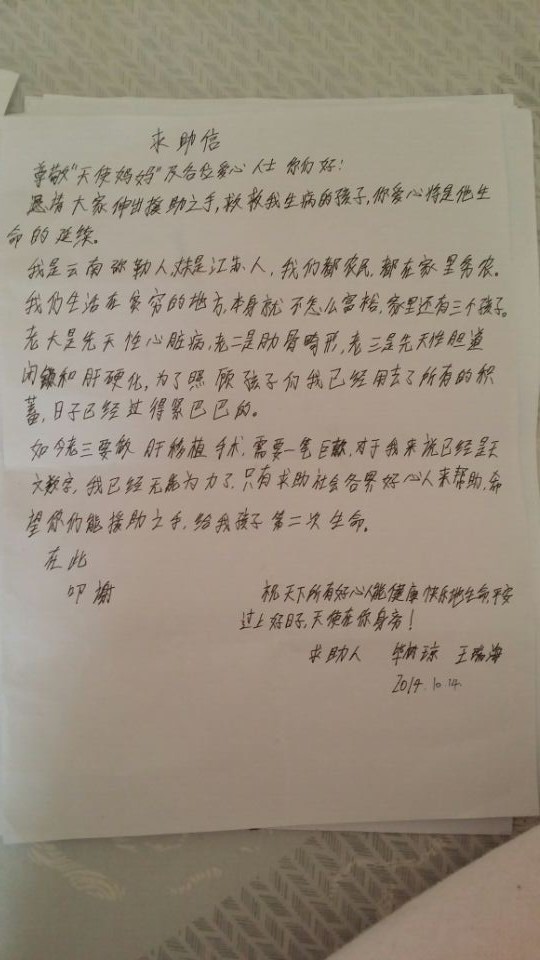 求助信
尊敬“天使妈妈”及各位爱心人士 你们好！
恳请大家伸出援助之手，救救我生病的孩子，你爱心将是他生
命的延续。
我是云南弥勒人，妹是江苏人，我们都农民，都在家里务农。
我们生活在贫穷的地方，本身就不怎么富裕，家里还有三个孩子。
老大是先天性心脏病，老二是肋骨畸形，老三是先天性胆道
闭锁和肝硬化，为了照顾孩子们我已经用去了所有的积
蓄，日子已经过得紧巴巴的。
如今老三要做肝移植手术，需要一笔巨款，对于我来说已经是天
文数字，我已经无能为力了，只有求助社会各界好心人来帮助，希
望你们能援助之手，给我孩子第二次生命。
在此
叩谢
祝天下所有好心人能健康快乐地生命，平安
过上好日子，天使在你身旁！
求助人 琼 王瑞海
2014.10.14